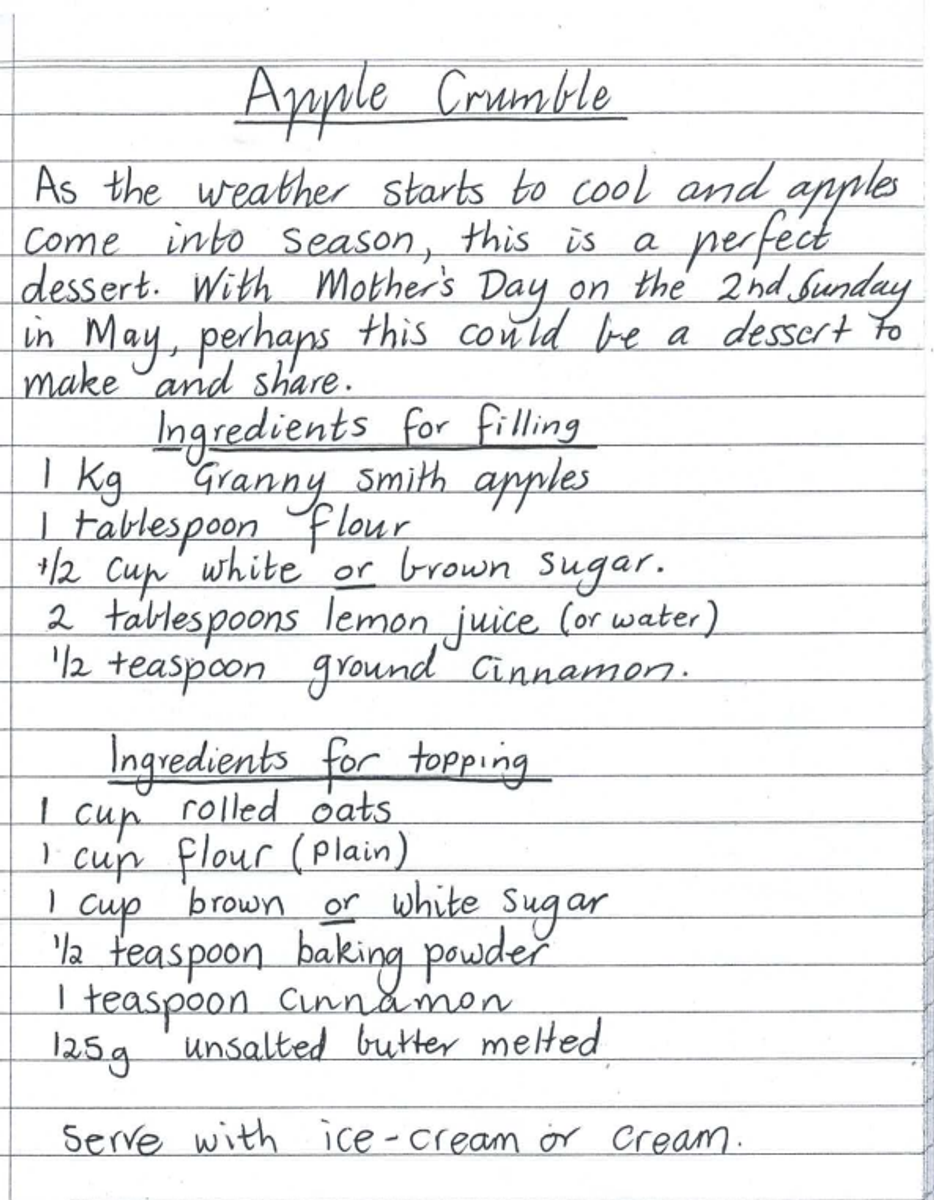 Apple Crumble
As the weather starts to cool and apples
come into season, this is a perfect
dessert. With Mother's Day on the 2nd Sunday
in May, perhaps this could be a dessert to
make and share.
Ingredients for filling
1 Kg Granny Smith apples
1 tablespoon flour
1/2 cup white or brown sugar.
2 tablespoons lemon juice (or water)
1/2 teaspoon ground cinnamon.
Ingredients for topping
1 cup rolled oats
1 cup flour (plain)
1 cup brown or white sugar
1/2 teaspoon baking powder
1 teaspoon cinnamon
125g unsalted butter melted
Serve with ice-cream or cream.